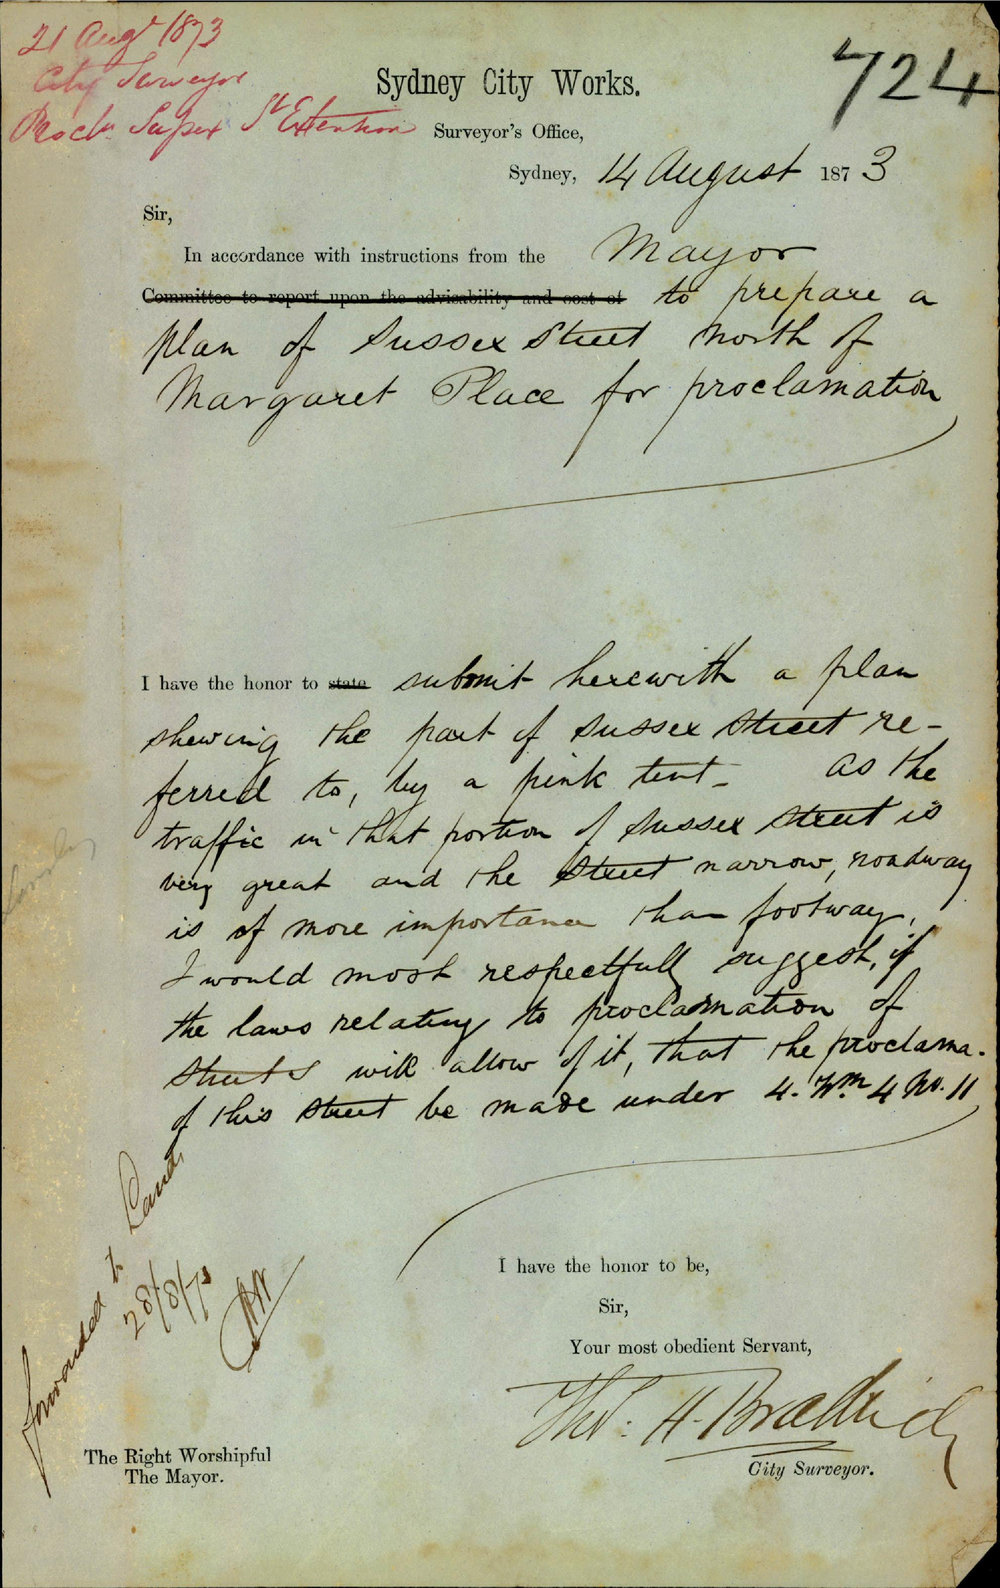 21 Augt 1873
City Surveyor
Procln Sussex St Extention
724
Sydney City Works.
Surveyor's Office,
Sydney, 14 August 1873
Sir,
In accordance with instructions from the Mayor
Committee to report upon the advisability and cost of to prepare a
plan of Sussex Street North of
Margaret Place for proclamation
I have the honor to state submit herewith a plan
shewing the part of Sussex Street re-
ferred to, by a pink tint - As the
traffic in that portion of Sussex Street is
very great and the Street narrow, roadway
is of more importance than footway,
I would most respectfully suggest, if
the laws relating to proclamation of
Streets will allow of it, that the proclama-
of this Street be made under 4. Wm. 4 No. 11
I have the honor to be,
Sir,
Your most obedient Servant,
Thos. H. Bradridge
City Surveyor.
forwarded to Lands
28/8/73
The Right Worshipful
The Mayor.